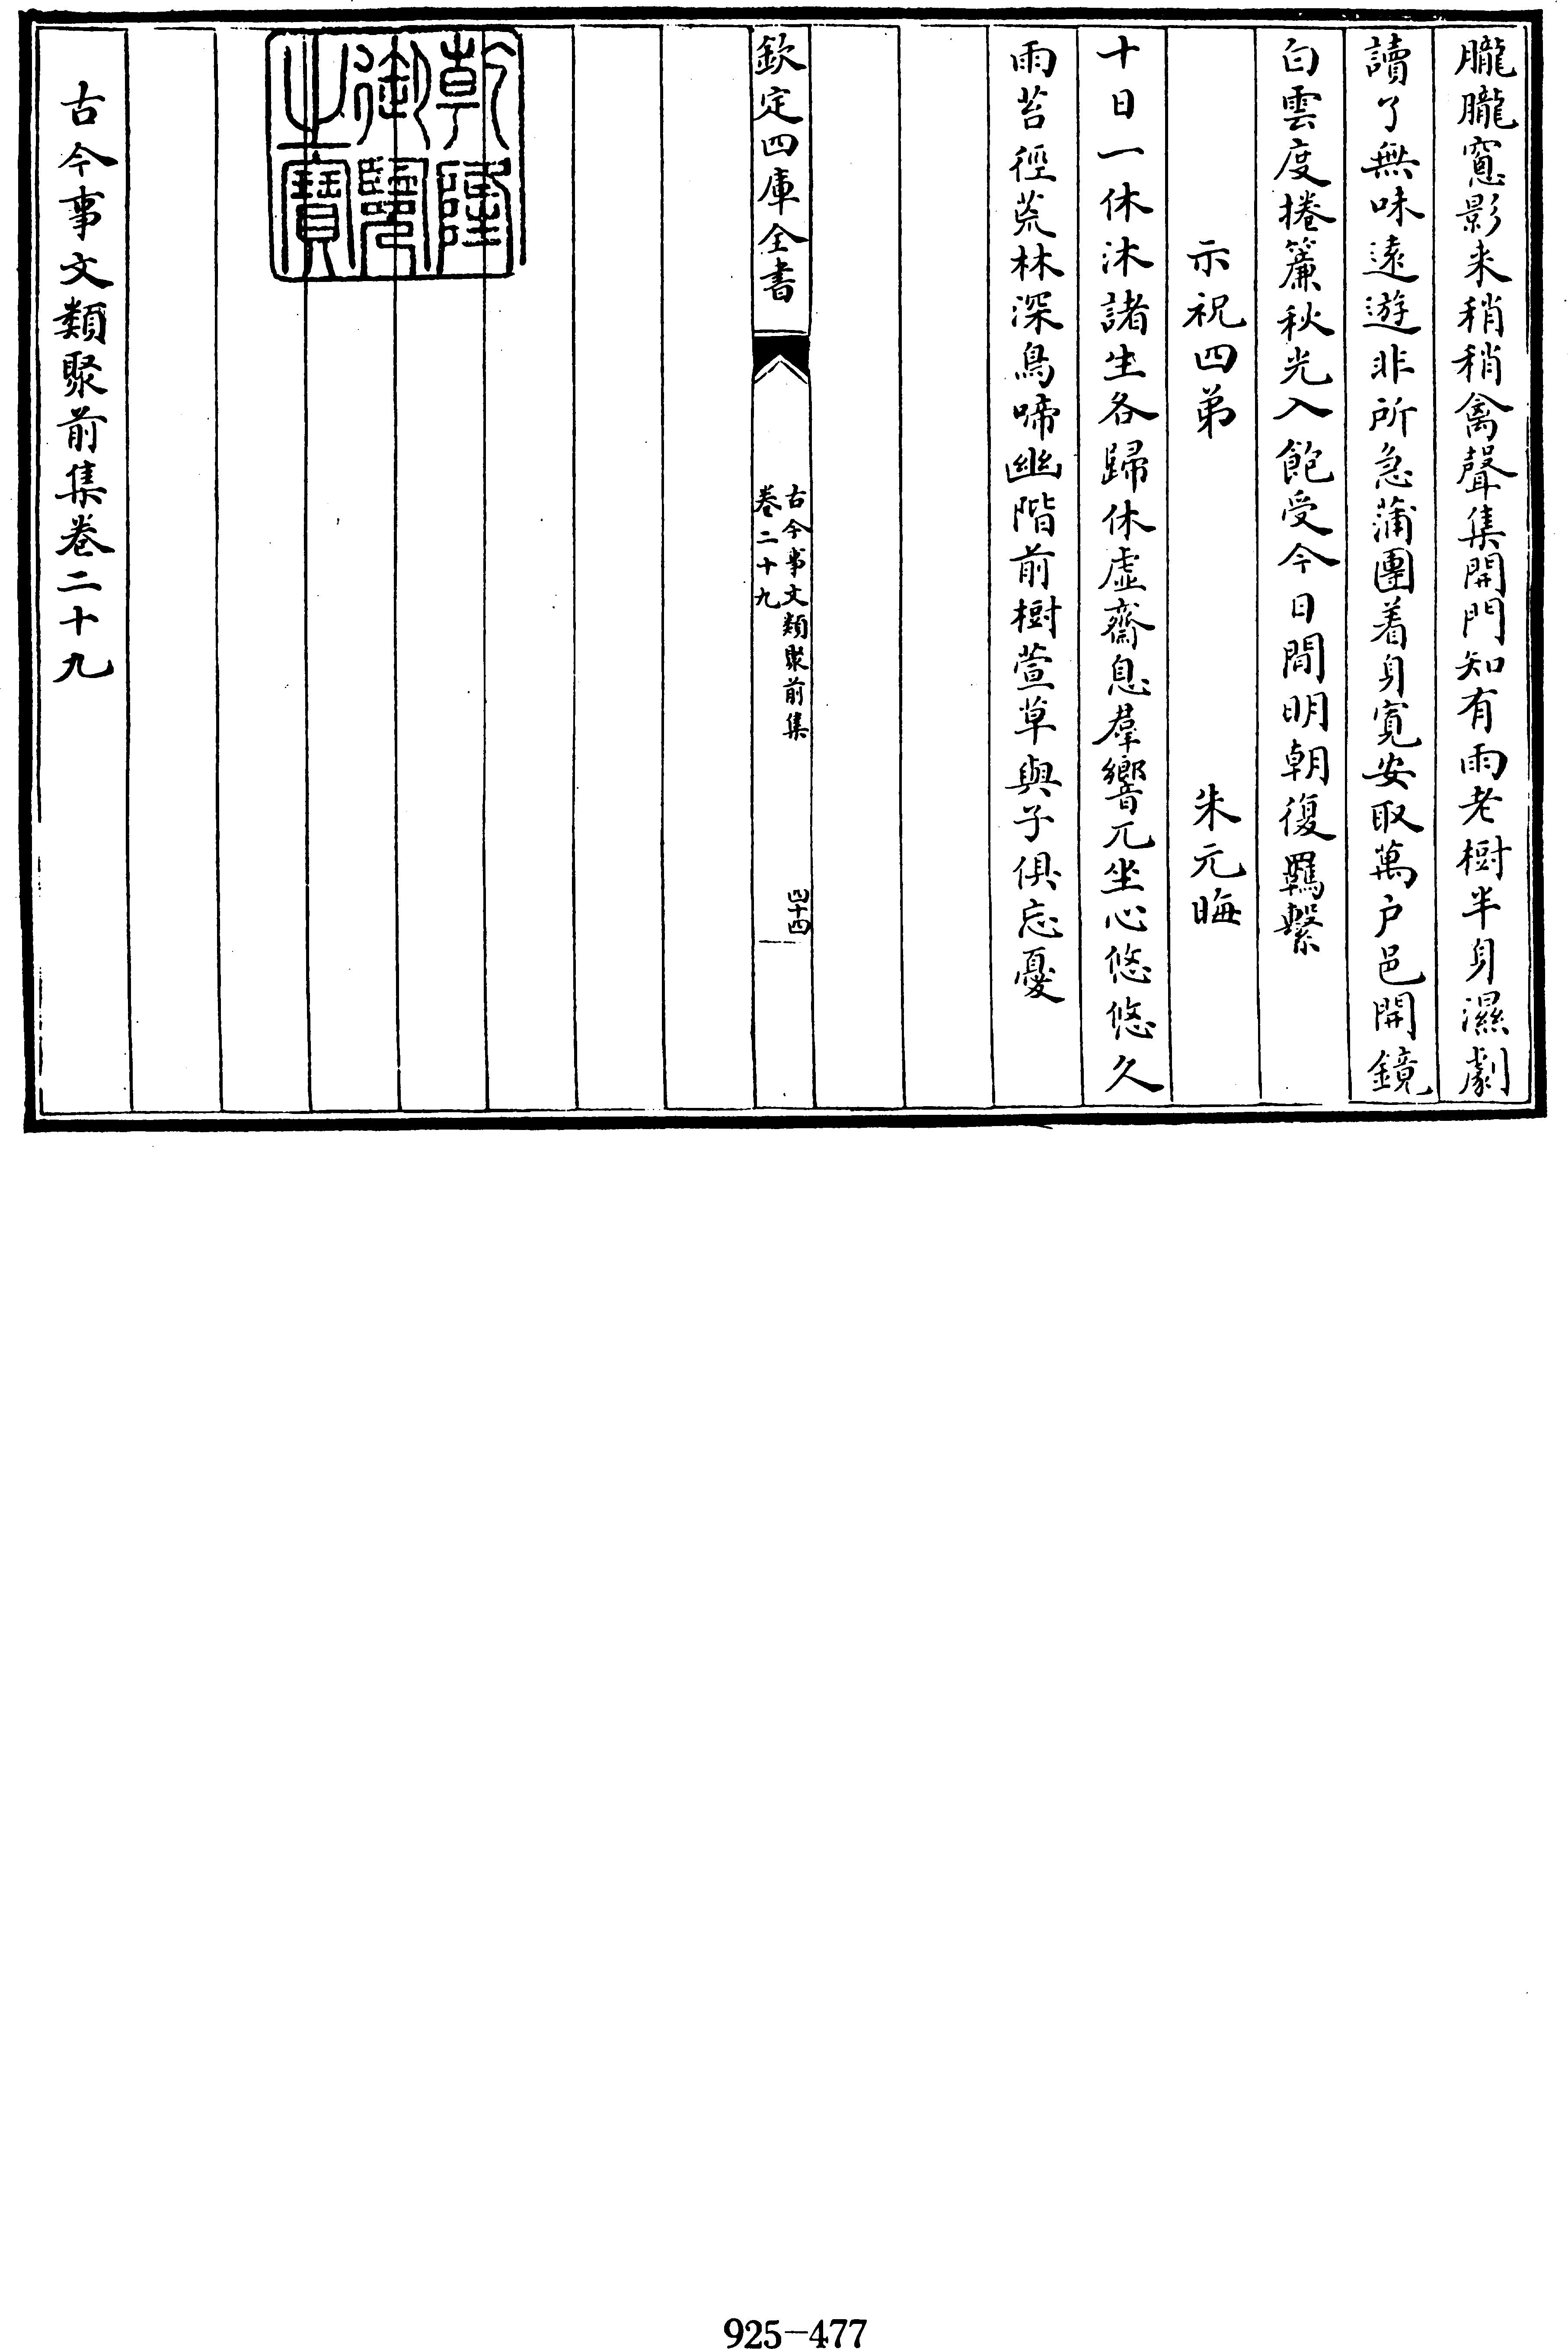 朧朧窻影来稍稍禽聲集開門知有雨老樹半身濕劇
讀了無味逺遊非所急蒲團着身寛安取萬户邑開鏡
白雲度捲簾秋光入飽受今日閒明朝復羈繫
示祝四弟　朱元晦
十日一休沐諸生各歸休虚齋息羣響兀坐心悠悠久
雨苔徑荒林深鳥啼幽階前樹萱草與子俱忘憂
欽定四庫全書
古今事文類聚前集
卷二十九
四十四
乾隆
御覽
之寶
古今事文類聚前集卷二十九
925-477